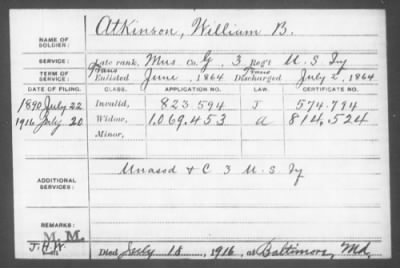 NAME OF SOLDIER: Atkinson, William B.
SERVICE: Late rank, Mus Co. G, 3 Reg't U. S. Iy
TERM OF SERVICE: Trans Enlisted June, 1864 Trans Discharged July 2, 1864
DATE OF FILING. CLASS. APPLICATION NO. LAW. CERTIFICATE NO.
1890 July 22 Invalid, 823 594 J 574.794
1916 July 20 Widow, 1.069.453 a 814,524
Minor,
ADDITIONAL SERVICES: Unassd & C 3 U. S. Iy
REMARKS: M. M.
J.H.W. Died July 18, 1916, at Baltimore, Md.